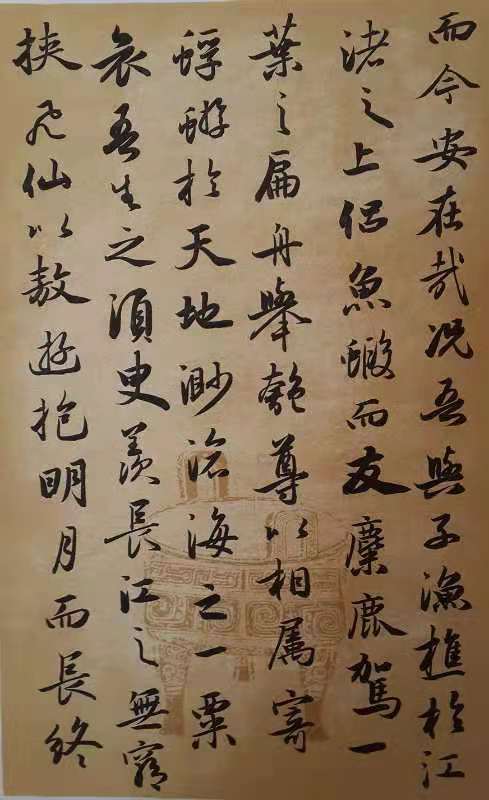 而今安在哉况吾與子漁樵於江
渚之上侣魚蝦而友麋鹿駕一
葉之扁舟舉匏尊以相属寄
蜉蝣於天地渺滄海之一粟
哀吾生之須臾羨長江之無窮
挾飛仙以遨遊抱明月而長終